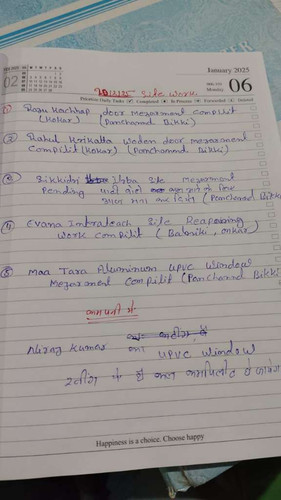 January 2025
02
06
MON-2025
Monday
20/1/25 Side work
Prioritize Daily Tasks Completed In Process Forwarded Deleted
① Raju Kachhap door mejarment Compilit
(Kokar) (Panchanand Bikki)
② Rahul Krikatta Woden door mejarament
Compilit (Kokar) (Panchanand Bikki)
③ Sikkidri Side mejarment
Pending पानी होने के लिए
आज मना कर दिया (Panchanand Bikki)
④ Evana Intrateach Side Reapairing
Work Compilit (Babniki, onkar)
⑤ Maa Tara Aluminium UPVC Window
Mejarament Compilit (Panchanand Bikki)
कम्पनी में
Niraj Kumar का UPVC Window
के है कल कमपिलीट हो जायेगा
Happiness is a choice. Choose happy